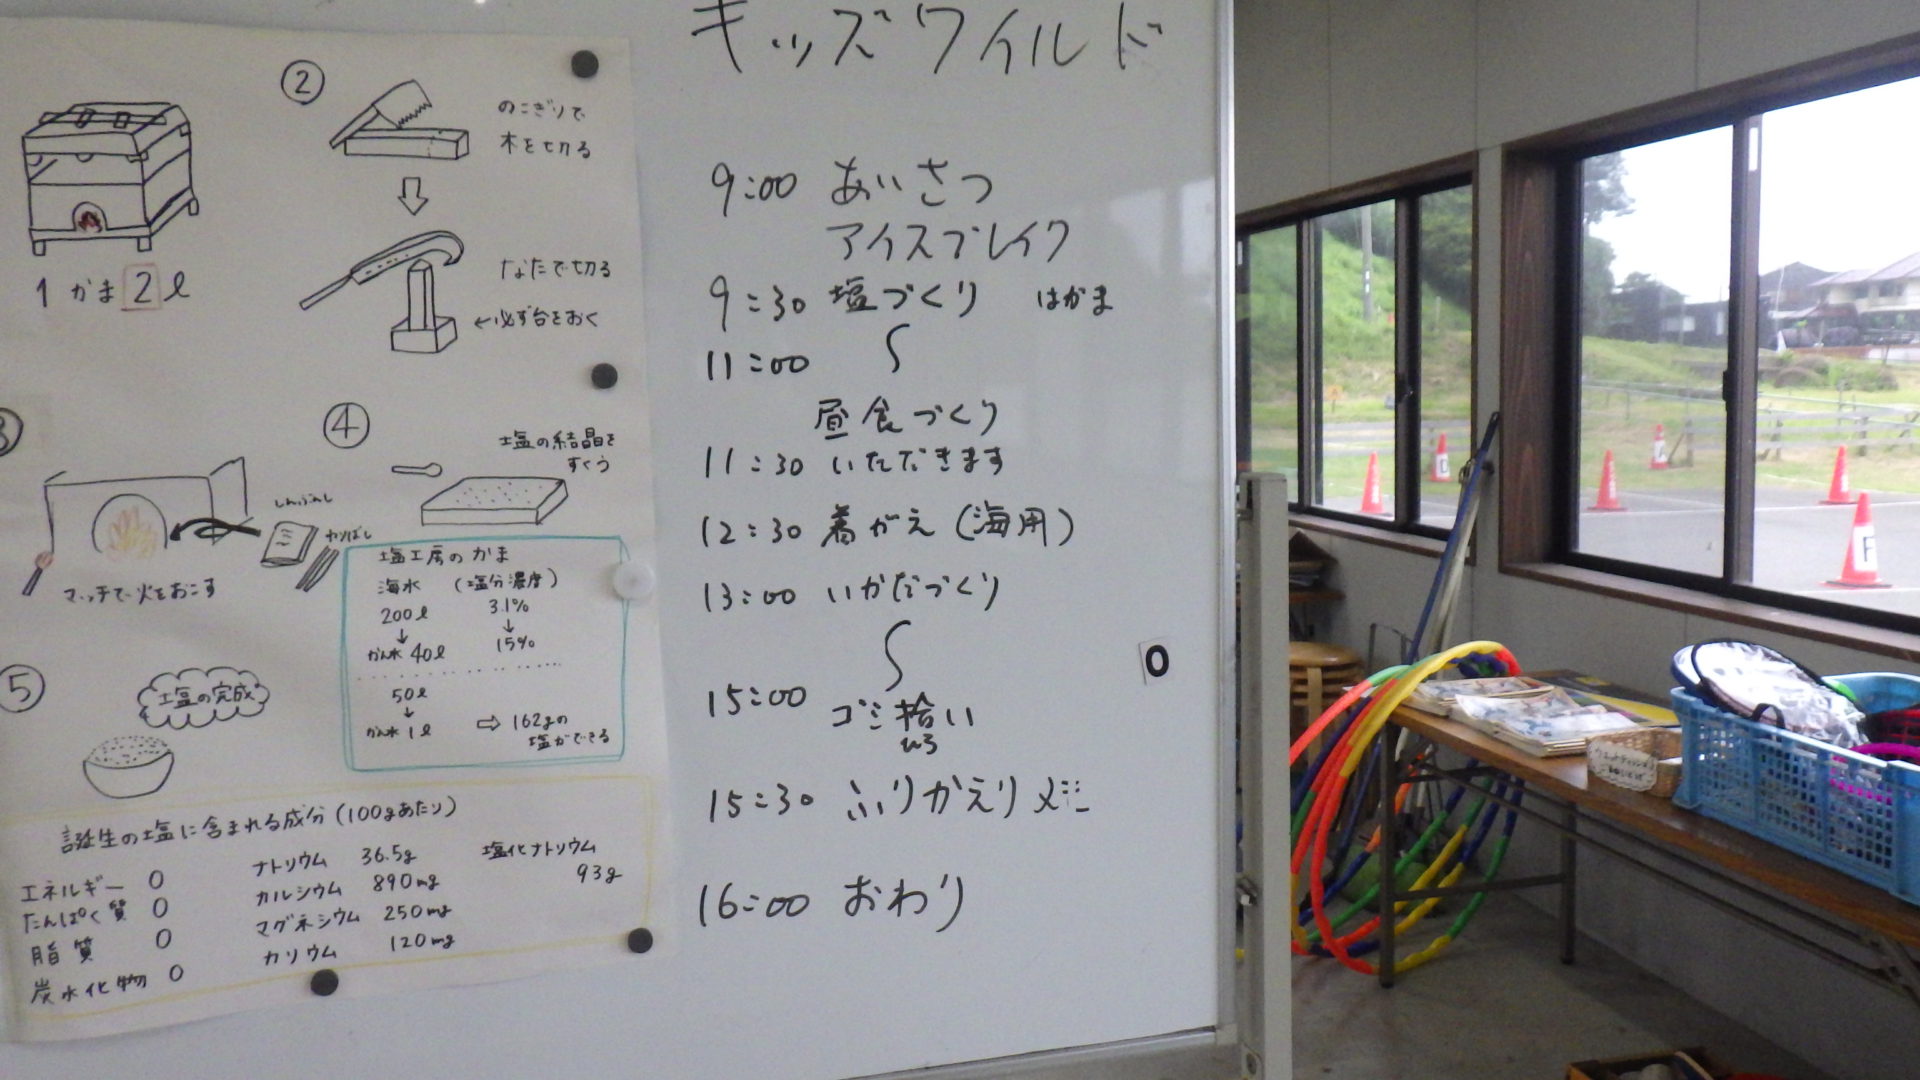 1 かま 2ℓ
②
のこぎりで
木を切る
なたで切る
←必ず台をおく
マッチで火をおこす
しんぶんし
わりばし
④
塩の結晶を
すくう
塩工房のかま
海水 (塩分濃度)
200ℓ 3.1%
↓ ↓
かん水 40ℓ 15%
50ℓ
↓
かん水 1ℓ ⇨ 162gの
塩ができる
⑤
塩の完成
誕生の塩に含まれる成分(100gあたり)
エネルギー 0
たんぱく質 0
脂質 0
炭水化物 0
ナトリウム 36.5g
カルシウム 890mg
マグネシウム 250mg
カリウム 120mg
塩化ナトリウム
93g
キッズワイルド
9:00 あいさつ
アイスブレイク
9:30 塩づくり はかま
11:00
昼食づくり
11:30 いただきます
12:30 着がえ(海用)
13:00 いかだづくり
15:00
ゴミ拾い
ひろ
15:30 ふりかえり
16:00 おわり
0
F